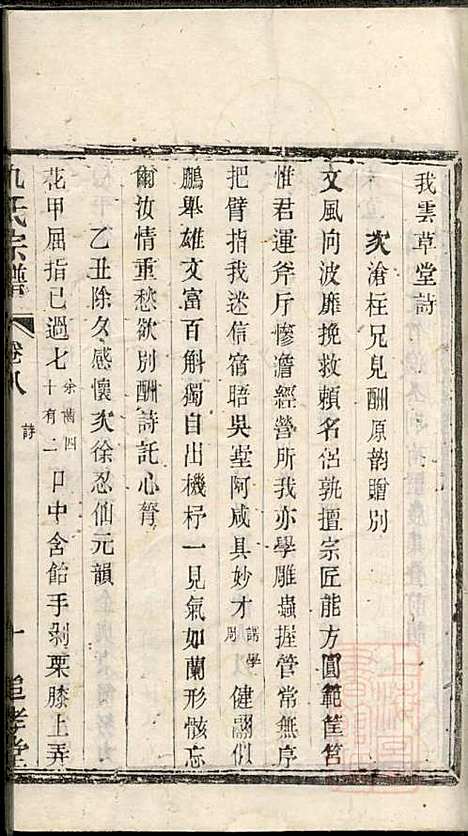 我雲草堂詩
次滄枉兄見酬原韵贈別
文風向波靡挽救賴名侶孰擅宗匠能方圓範筐筥
惟君運斧斤慘澹經營所我亦學雕蟲握管常無序
把臂指我迷信宿晤吳堂阿咸具妙才謂學周健翮似
鵬舉雄文富百斛獨自出機杼一見氣如蘭形骸忘
爾汝情重愁欲別酬詩託心膂
乙丑除夕感懷次徐忍仙元韻
花甲屈指已過七余齒四十有二口中含飴手剥栗膝上弄
氏宗譜
卷八
詩
一
追孝堂